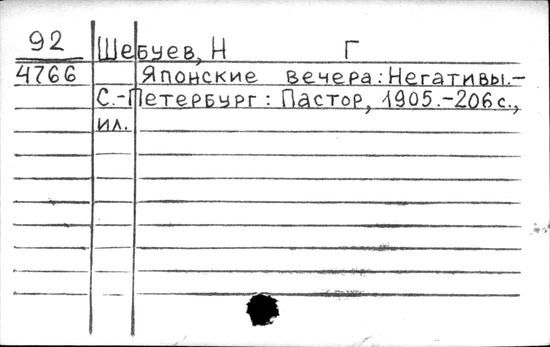 92 Шебуев, Н Г
4766 Японские вечера: Негативы.-
С.-Петербург: Пастор, 1905.-206с.,
ил.